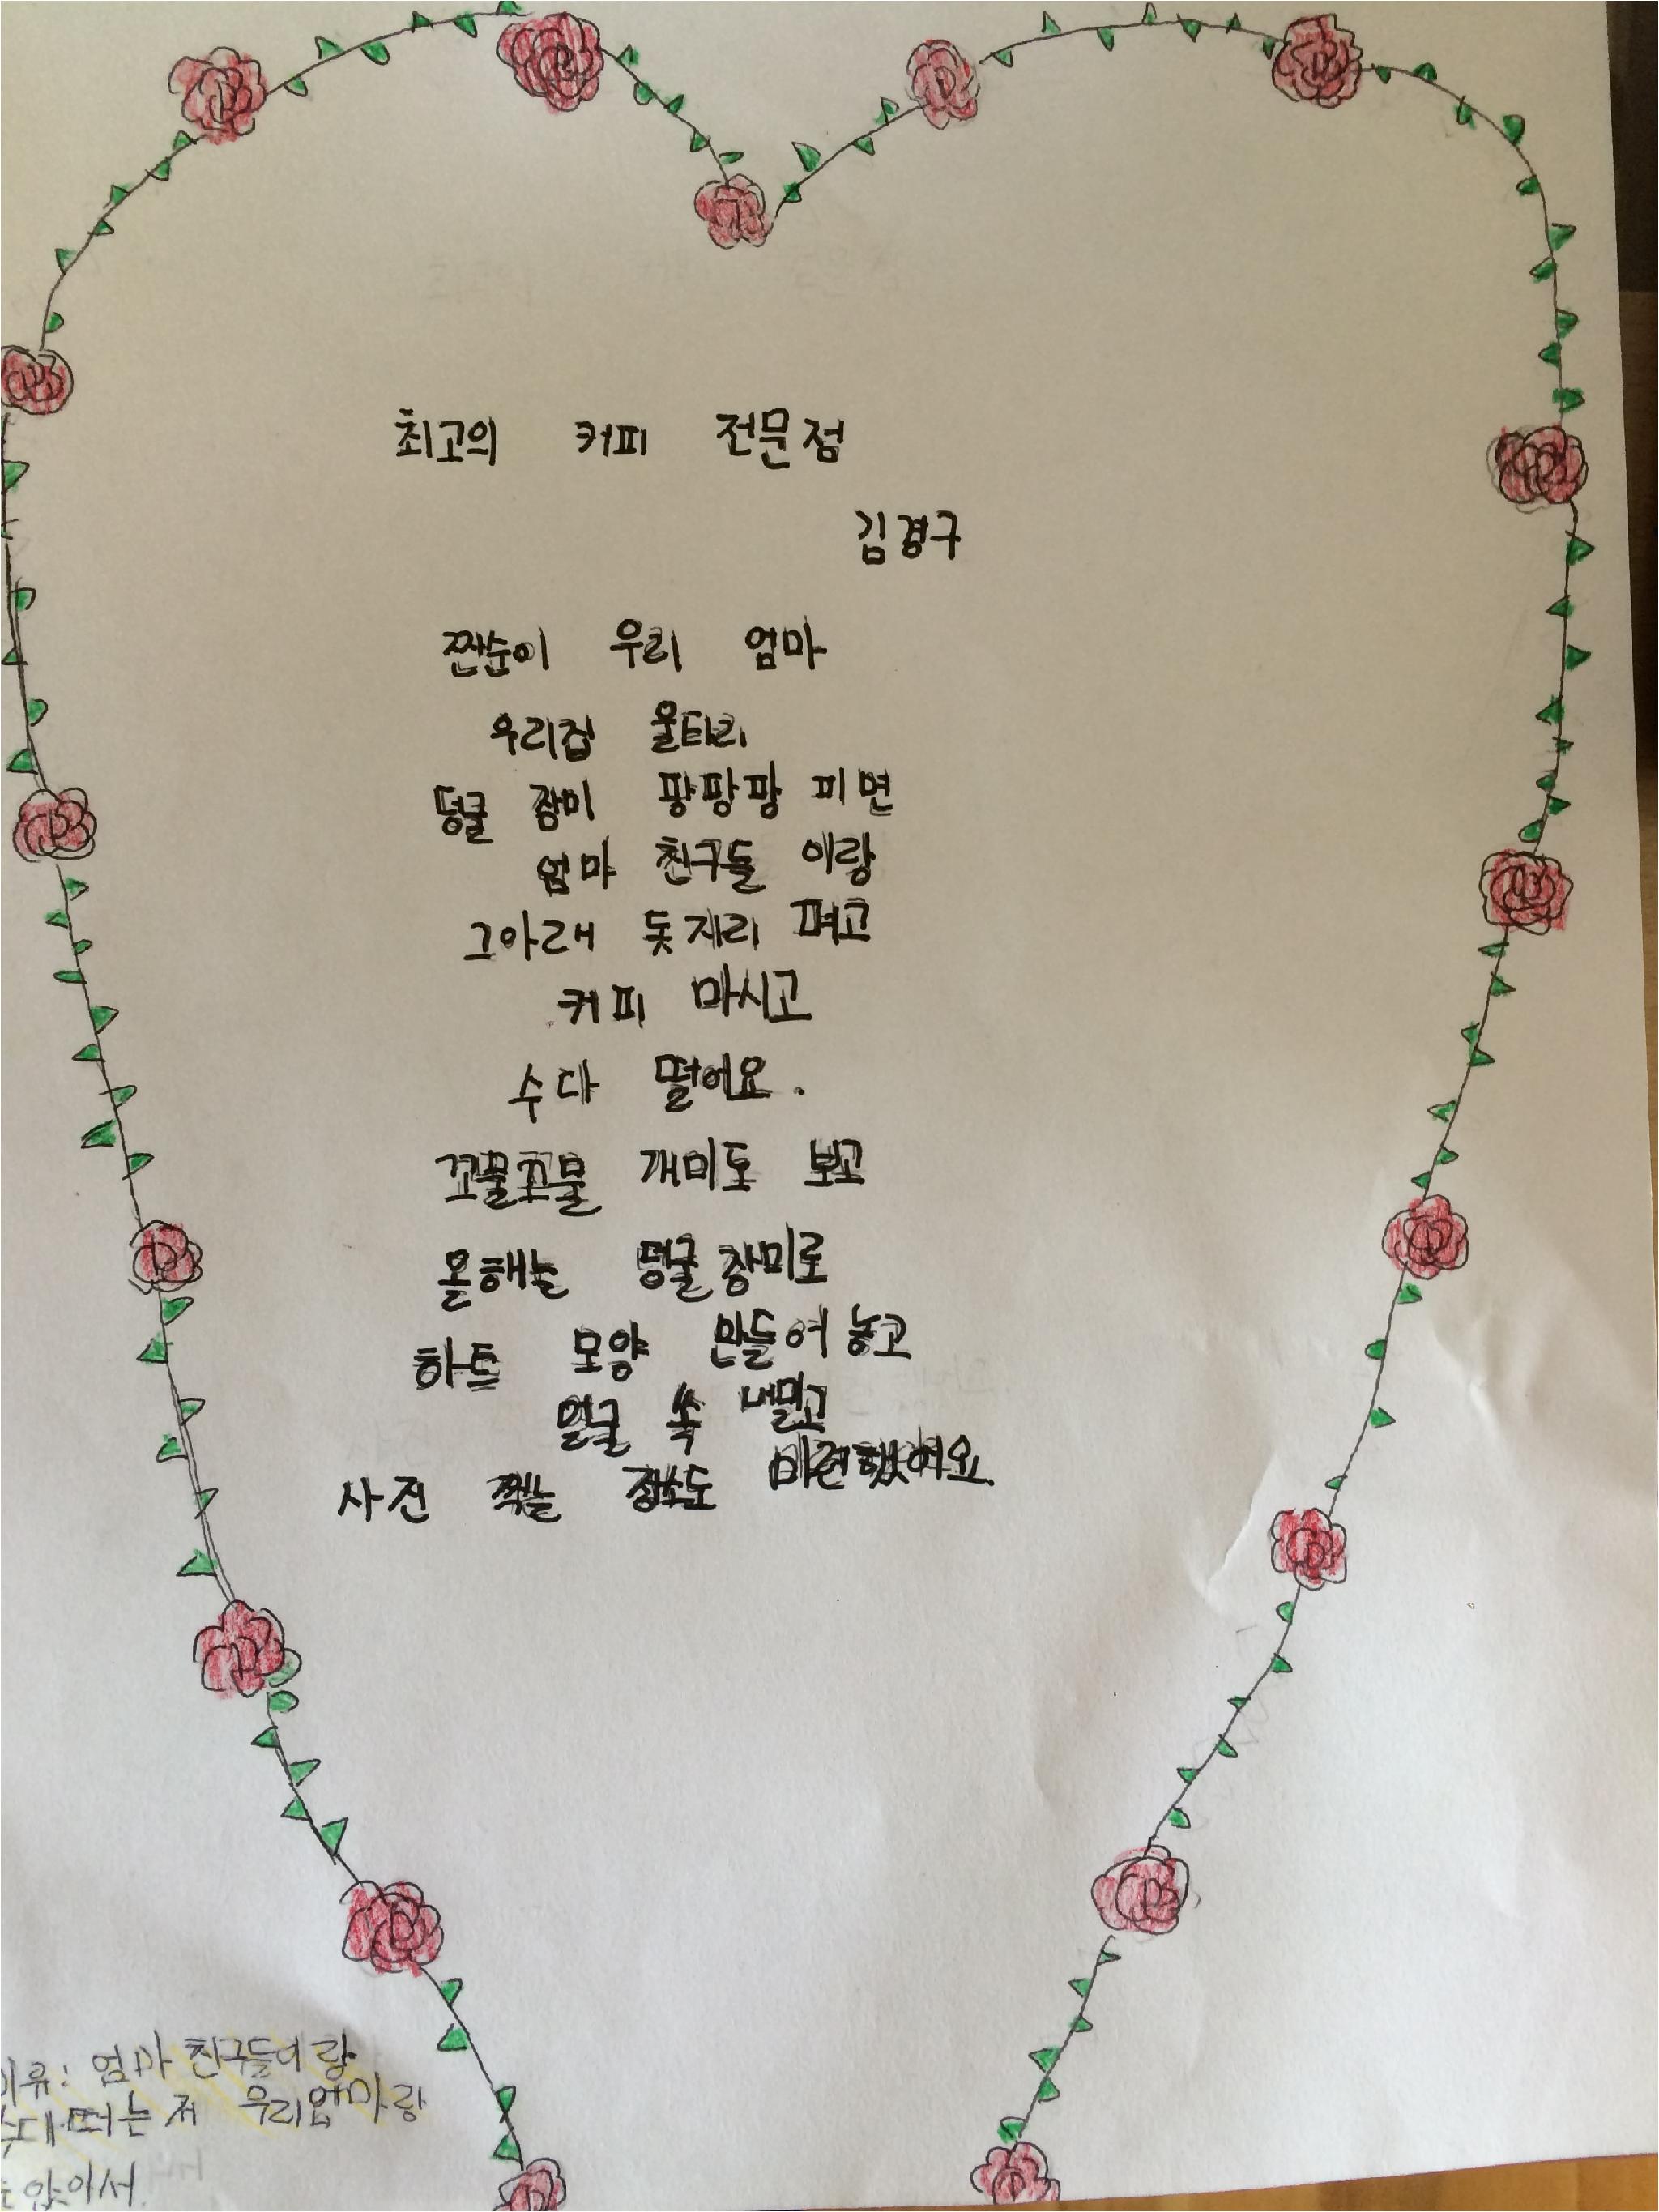 최고의 커피 전문점
김경구
짠순이 우리 엄마
우리집 울타리
덩굴 장미 팡팡팡 피면
엄마 친구들 이랑
그아래 돗자리 펴고
커피 마시고
수다 떨어요.
꼬물꼬물 개미도 보고
올해는 덩굴장미로
하트 모양 만들어 놓고
얼굴 쏙 내밀고
사진 찍는 장소도 마련했어요.
이류: 엄마 친구들이랑
수다떠는 저 우리엄마랑
앉아서.